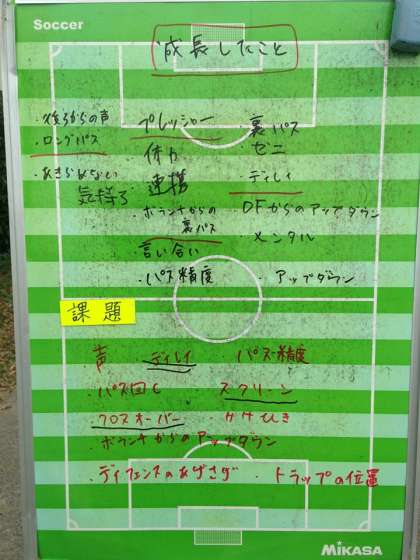 Soccer
成長したこと
・後ろからの声
・ロングパス
・あきらめない
気持ち
・プレッシャー
・体力
・連携
・ボランチからの
裏パス
・言い合い
・パス精度
・裏パス
・ゼニ
・ディレイ
・DFからのアップダウン
・メンタル
・アップダウン
課題
・声
・ディレイ
・パス精度
・パス回し
・スクリーン
・クロスオーバー
・かけひき
・ボランチからのアップダウン
・ディフェンスのあげさげ
・トラップの位置
MIKASA